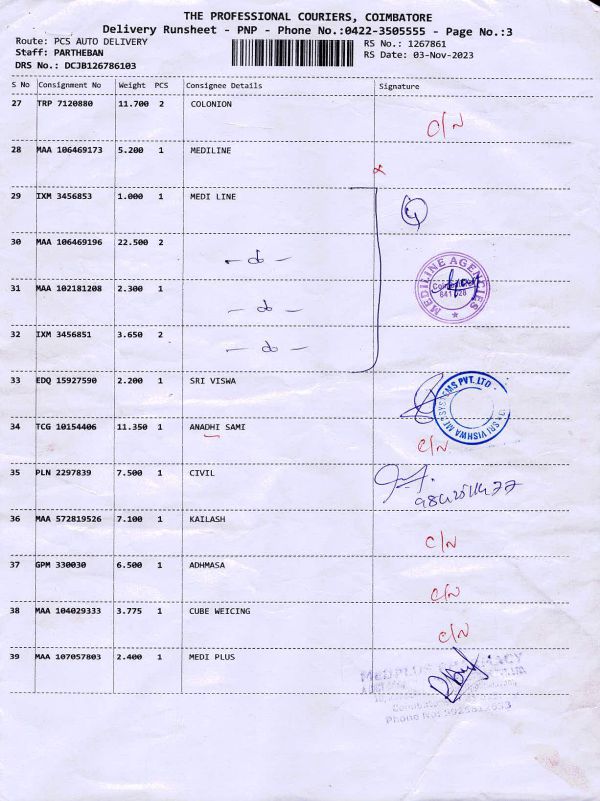 THE PROFESSIONAL COURIERS, COIMBATORE
Delivery Runsheet - PNP - Phone No.:0422-3505555 - Page No.:3
Route: PCS AUTO DELIVERY
RS No.: 1267861
Staff: PARTHEBAN
RS Date: 03-Nov-2023
DRS No.: DCJB126786103
S No Consignment No Weight PCS Consignee Details Signature
27 TRP 7120880 11.700 2 COLONION C/N
28 MAA 106469173 5.200 1 MEDILINE
29 IXM 3456853 1.000 1 MEDI LINE
30 MAA 106469196 22.500 2 - do -
MEDILINE AGENCIES
31 MAA 102181208 2.300 1 - do -
32 IXM 3456851 3.650 2 - do -
33 EDQ 15927590 2.200 1 SRI VISWA
34 TCG 10154406 11.350 1 ANADHI SAMI C/N
35 PLN 2297839 7.500 1 CIVIL
36 MAA 572819526 7.100 1 KAILASH C/N
37 GPM 330030 6.500 1 ADHMASA C/N
38 MAA 104029333 3.775 1 CUBE WEICING C/N
39 MAA 107057803 2.400 1 MEDI PLUS